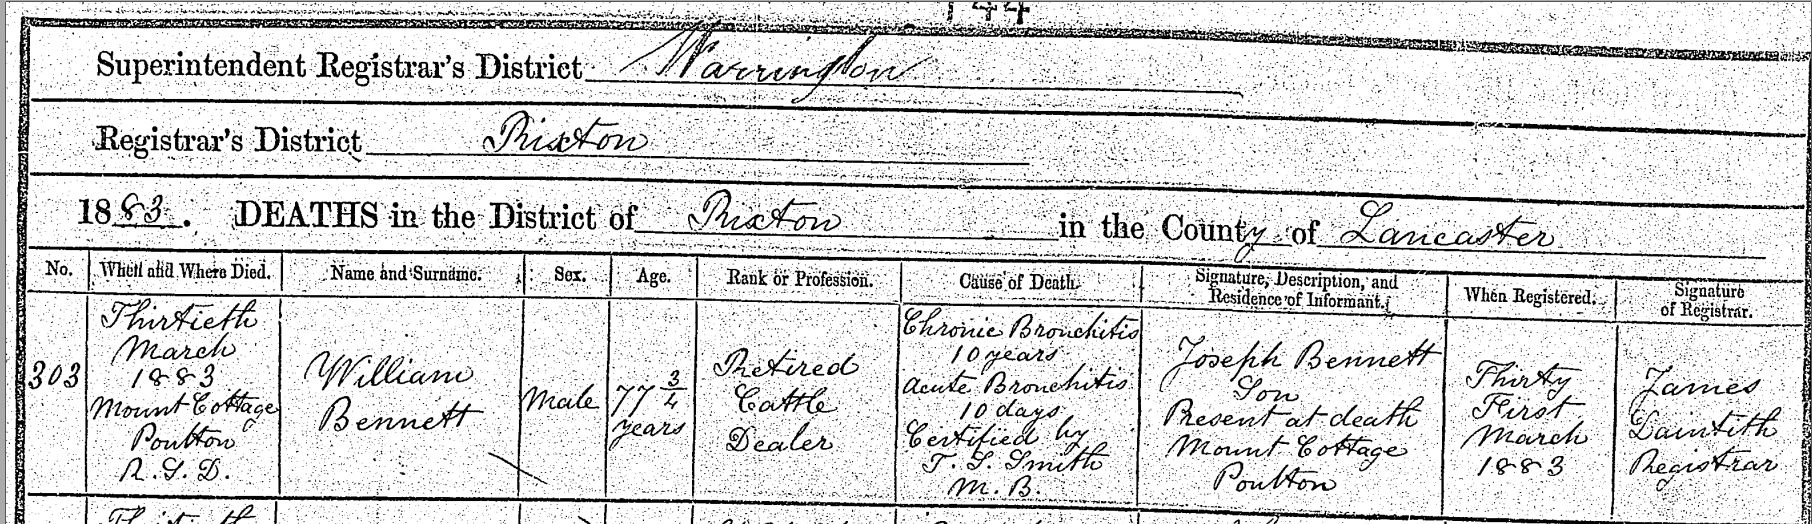 144
Superintendent Registrar's District Warrington
Registrar's District Rixton
1883. DEATHS in the District of Rixton in the County of Lancaster
No. When and Where Died. Name and Surname. Sex. Age. Rank or Profession. Cause of Death. Signature, Description, and Residence of Informant. When Registered. Signature of Registrar.
303
Thirtieth
March
1883
Mount Cottage
Poulton
R.S.D.
William
Bennett
Male
77 3/4
years
Retired
Cattle
Dealer
Chronic Bronchitis
10 years
Acute Bronchitis
10 days
Certified by
T. S. Smith
M.B.
Joseph Bennett
Son
Present at death
Mount Cottage
Poulton
Thirty
First
March
1883
James
Daintith
Registrar
Thirtieth